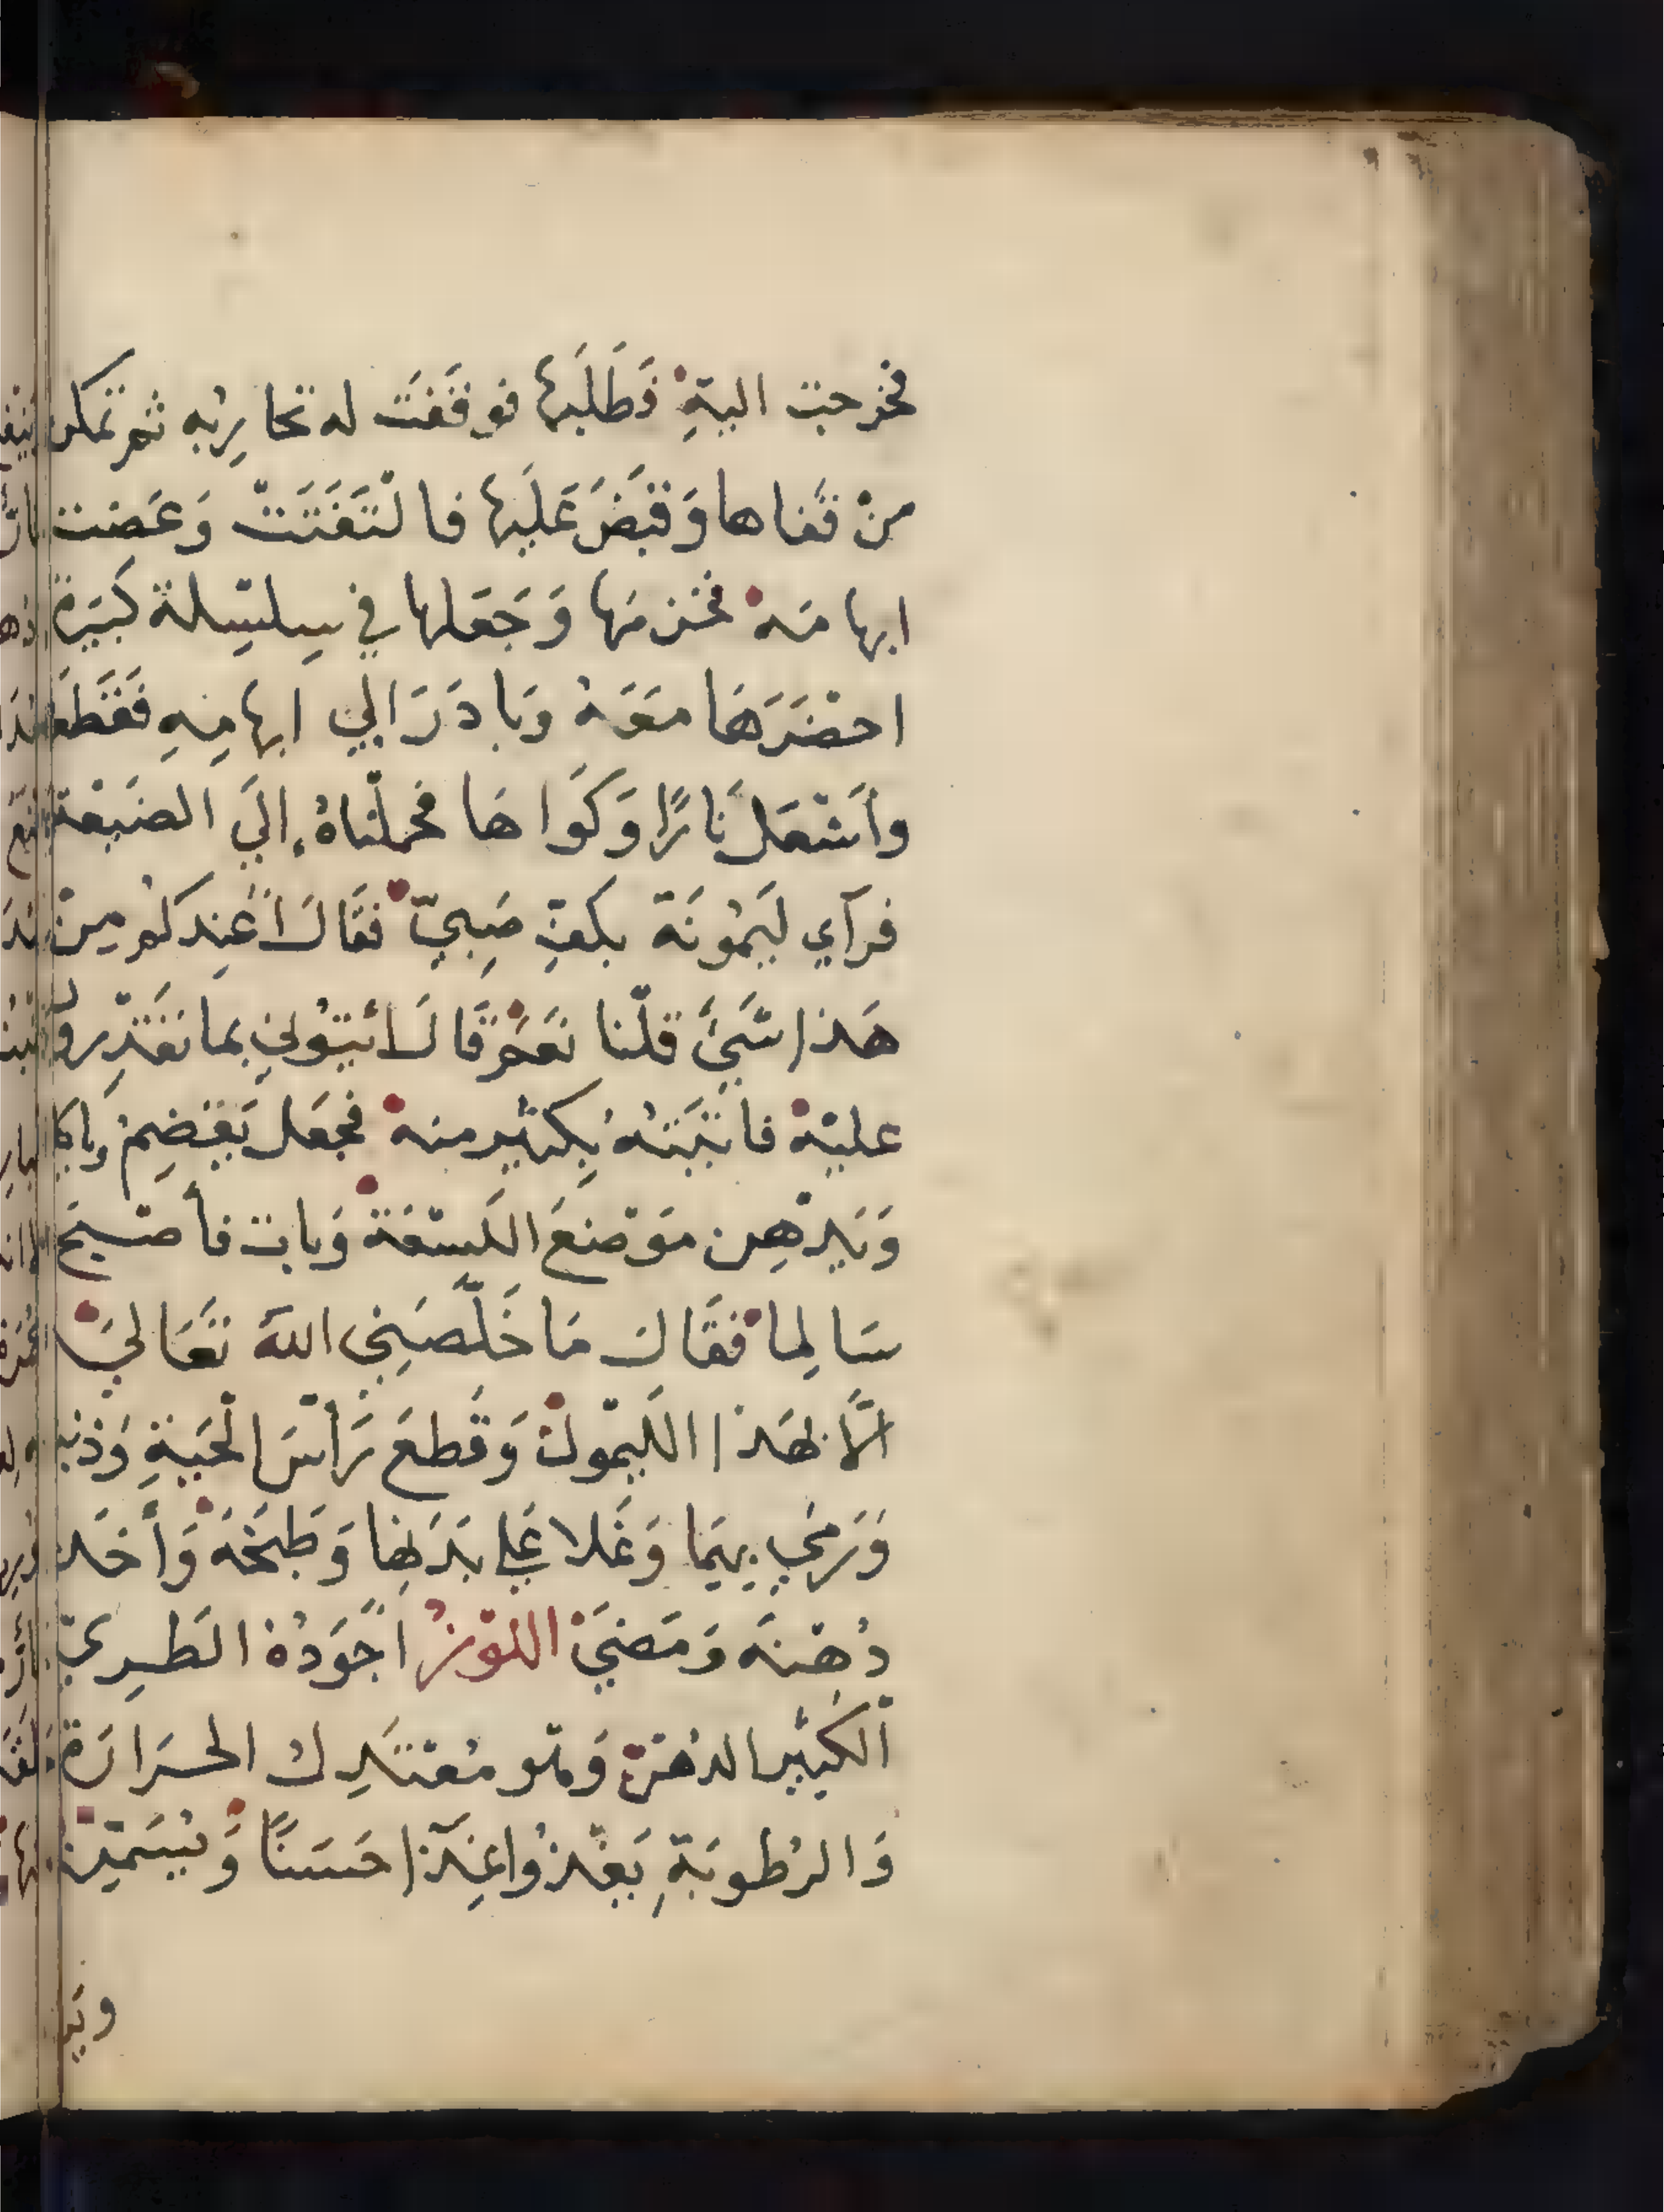 فخرجت اليهِ فَطَلَبَها فوقَفَت له تحارِبُه ثم تمكن
منْ قَفاها وَقَبَضَ عَلَيها فالْتَفَتَتْ وَعَضت
ابهامَه فخزمَها وَجَعَلها في سِلسِلة كَبيَرة
احضَرَهَا مَعَهُ وَبادَرَ الي ابهامِهِ فَقَطَعَ
واَشعَل نَارًا وَكَوَاهَا فحملْناهُ اليَ الضَيْعَة
فرآي لَيْمُونَة بكفِ صَبِيّ فقَالَ اَعِندكُم مِنْ
هَذا شَيَئ قلْنا نعَم قَالَ ائيتوُني بما تقَدِرون
عليْه فاَتَيتهُ بِكثير منه فجعَل يَقضِمُ وياكل
وَيَدْهِن مَوْضعَ اللَسْعَة وَبات فأصْبحَ
سَالِما فقَالَ مَا خَلَّصَنِي اللهَ تعَالي
الَّا بهَذا اللَيْمون وَقَطعَ رَأسَ الْحَيةِ وَذنبه
وَرَميَ بِهِمَا وَغَلا عَلي بَدَنِها وَطَبخَهُ وَأخَذ
دُهْنَه وَمَضيَ اللَوْزُ اَجْوَدُهُ الطَرِيّ
اَلكَثير الدهْن وَهو مُعْتَدِل الحرَارَة
وَالرُطوبَةِ يَغْذُوا غِذَآا حَسَنًا وَيُسَمِّن